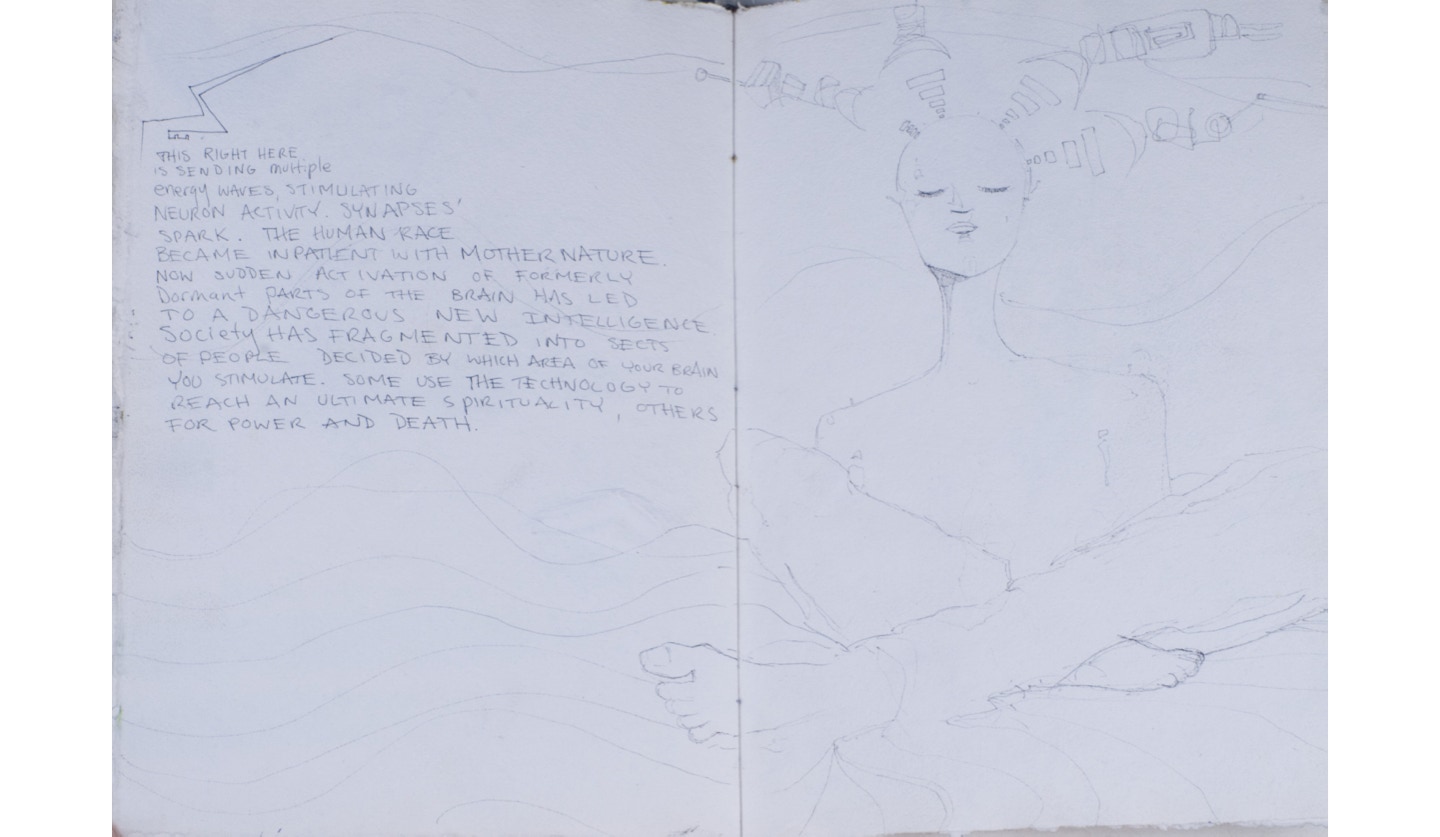 THIS RIGHT HERE
IS SENDING multiple
energy WAVES, STIMULATING
NEURON ACTIVITY. SYNAPSES'
SPARK. THE HUMAN RACE
BECAME INPATIENT WITH MOTHER NATURE.
NOW SUDDEN ACTIVATION OF FORMERLY
Dormant PARTS OF THE BRAIN HAS LED
TO A DANGEROUS NEW INTELLIGENCE
Society HAS FRAGMENTED INTO SECTS
OF PEOPLE DECIDED BY WHICH AREA OF YOUR BRAIN
YOU STIMULATE. SOME USE THE TECHNOLOGY TO
REACH AN ULTIMATE SPIRITUALITY, OTHERS
FOR POWER AND DEATH.